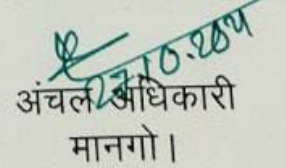 27.10.204
अंचल अधिकारी
मानगो।